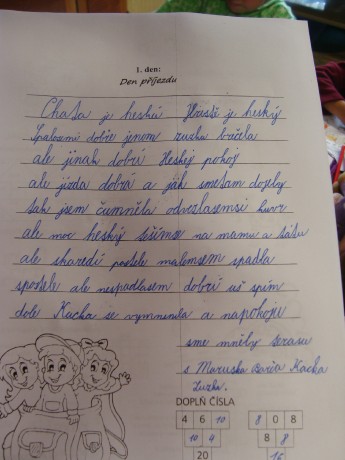 1. den:
Den příjezdu
Chata je heská Hřiště je heský
Spalosemi dobře jenom ruzka brčela
ale jinak dobrí Heskej pokoj
ale jizda dobrá a jak smetam dojely
tak jsem čumněla odvezlasemsi kufr
ale moc heský těšímse na mamu a tátu
ale skaredí postele malemsem spadla
spostele ale nespadlasem dobrí uš spím
dole Kacka se vymnenila a napokoju
sme mněly terasu
s Maruska Barča Kacka
Zuzka.
DOPLŇ ČÍSLA
4 6 10
10 4
20
8 0 8
8 8
16